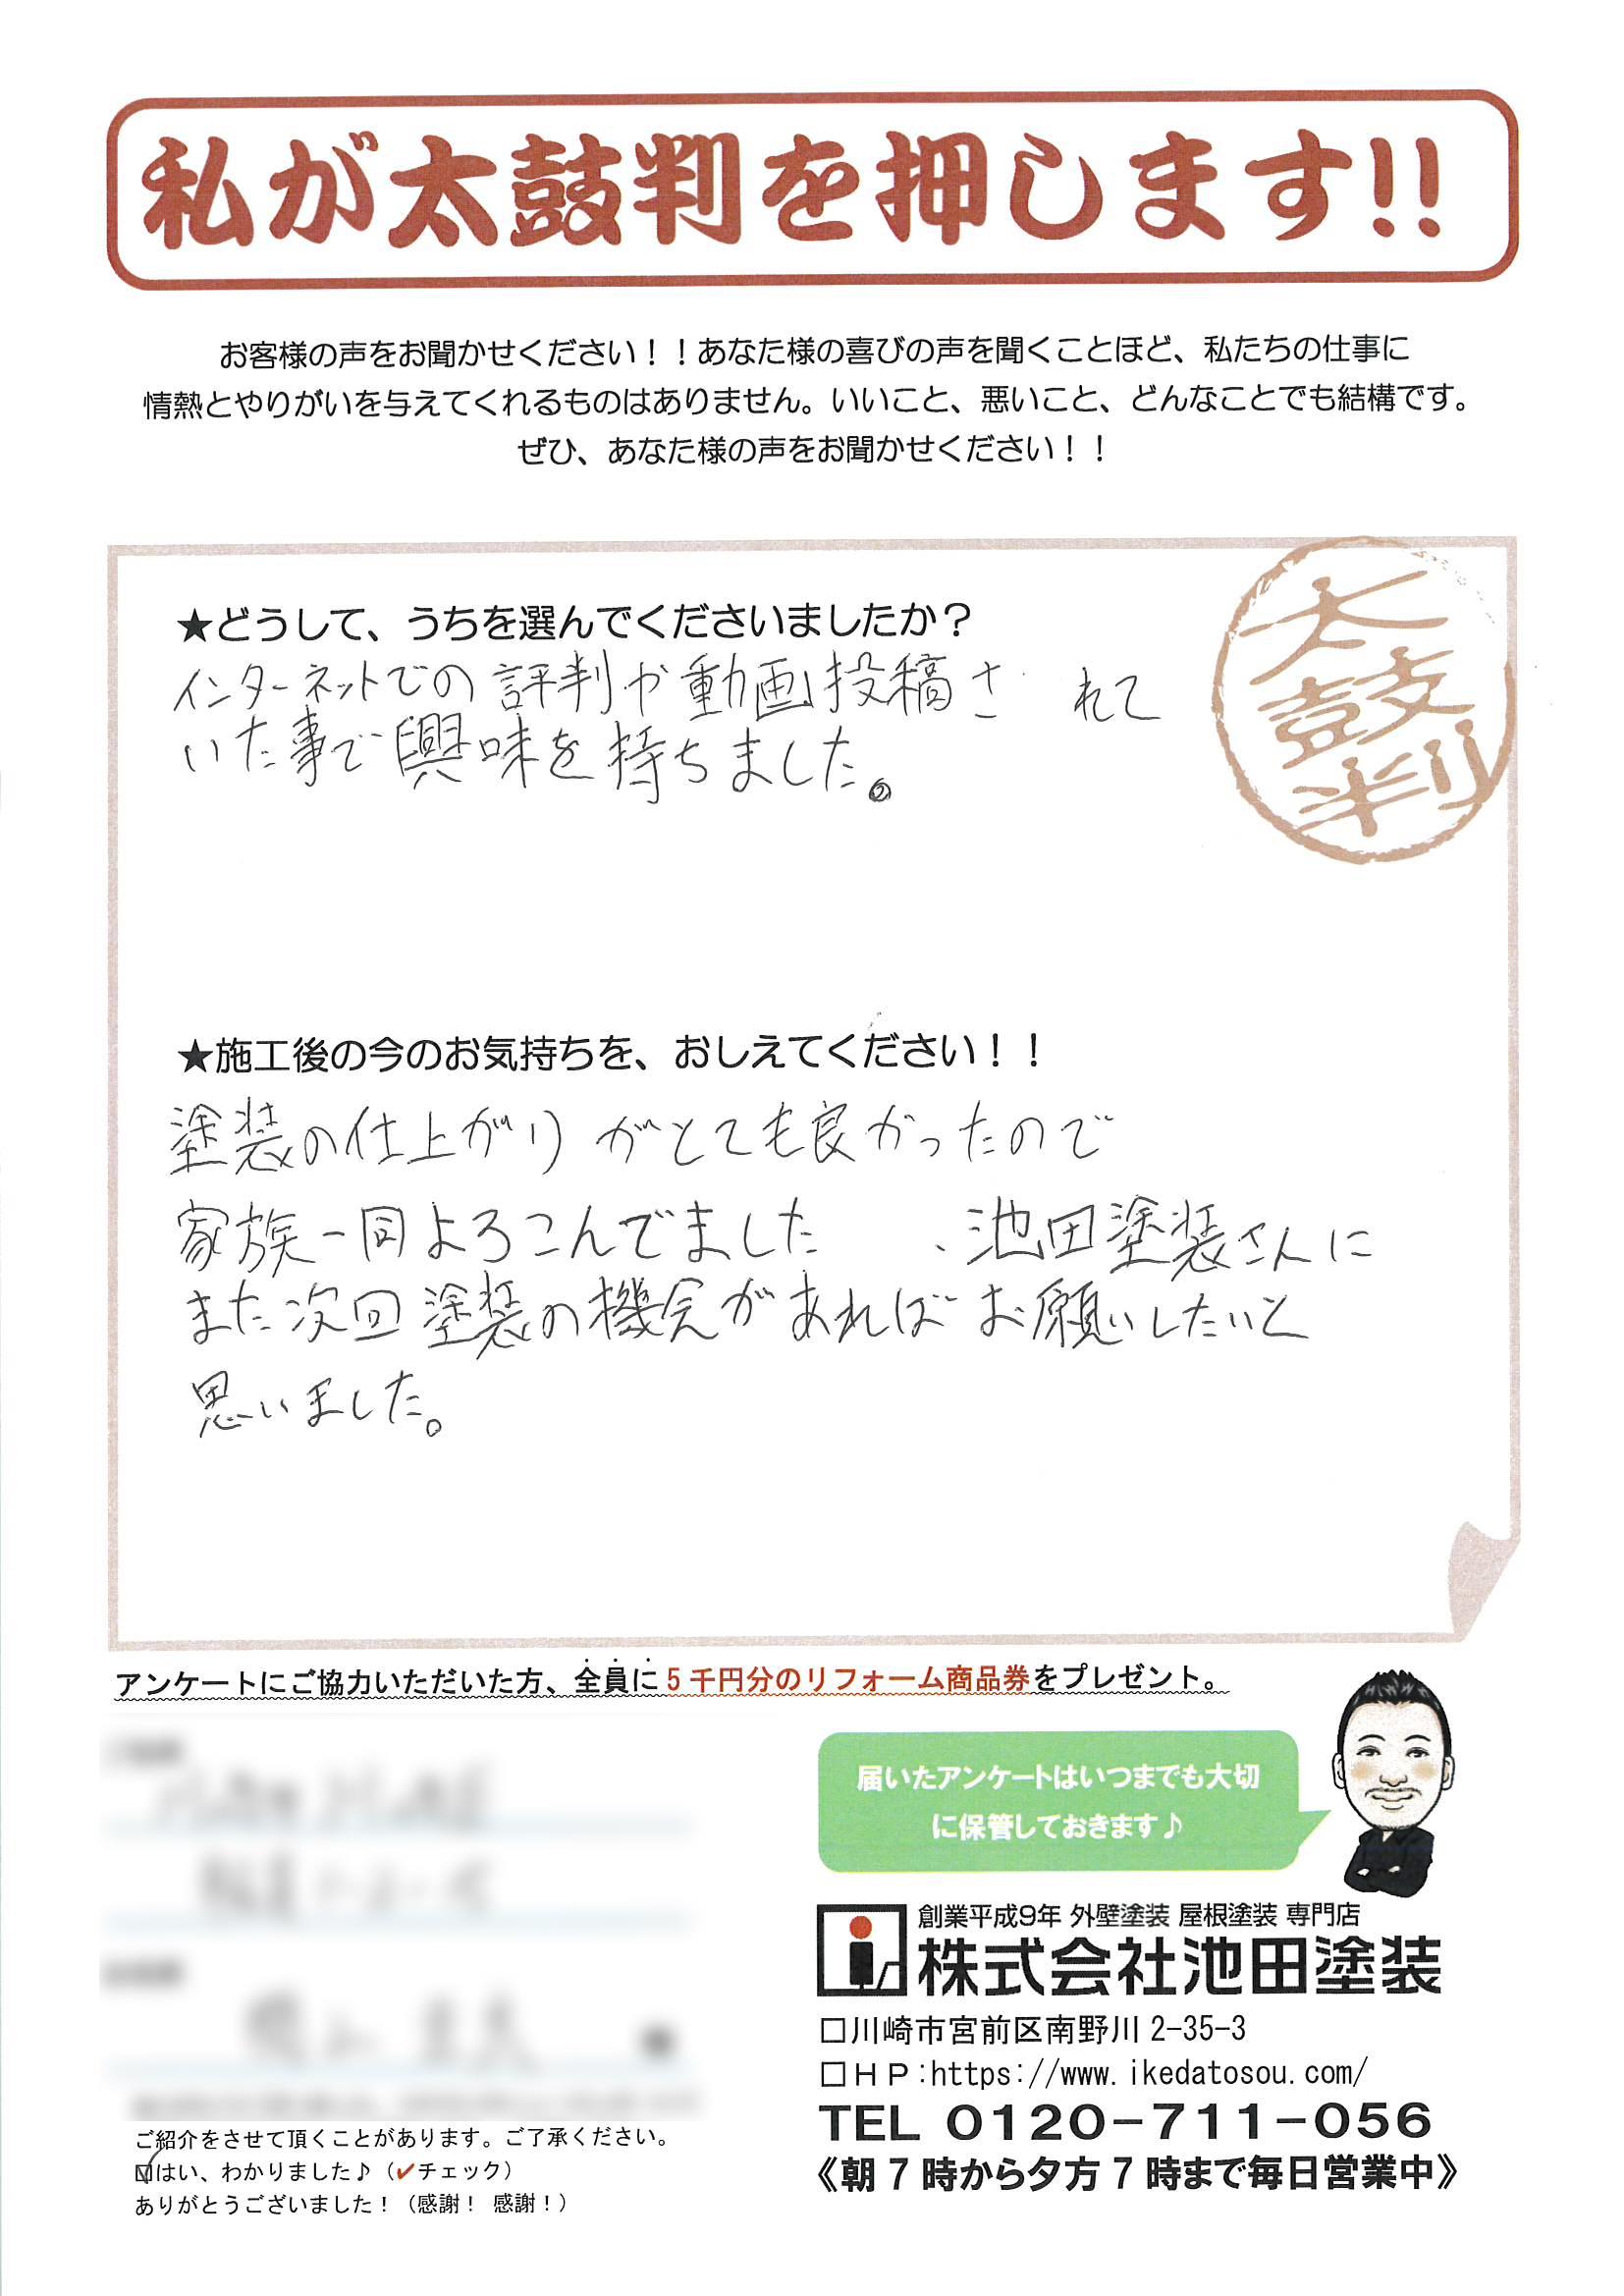 私が太鼓判を押します!!
お客様の声をお聞かせください！！あなた様の喜びの声を聞くことほど、私たちの仕事に
情熱とやりがいを与えてくれるものはありません。いいこと、悪いこと、どんなことでも結構です。
ぜひ、あなた様の声をお聞かせください！！
太鼓判
★どうして、うちを選んでくださいましたか？
インターネットでの評判や動画投稿されて
いた事で興味を持ちました。
★施工後の今のお気持ちを、おしえてください！！
塗装の仕上がりがとても良かったので
家族一同よろこんでました、池田塗装さんに
また次回塗装の機会があればお願いしたいと
思いました。
アンケートにご協力いただいた方、全員に5千円分のリフォーム商品券をプレゼント。
届いたアンケートはいつまでも大切
に保管しておきます♪
創業平成9年 外壁塗装 屋根塗装 専門店
株式会社池田塗装
□川崎市宮前区南野川2-35-3
□ＨＰ:https://www.ikedatosou.com/
TEL 0120-711-056
《朝7時から夕方7時まで毎日営業中》
ご紹介をさせて頂くことがあります。ご了承ください。
☑はい、わかりました♪（✔チェック）
ありがとうございました！（感謝！ 感謝！）